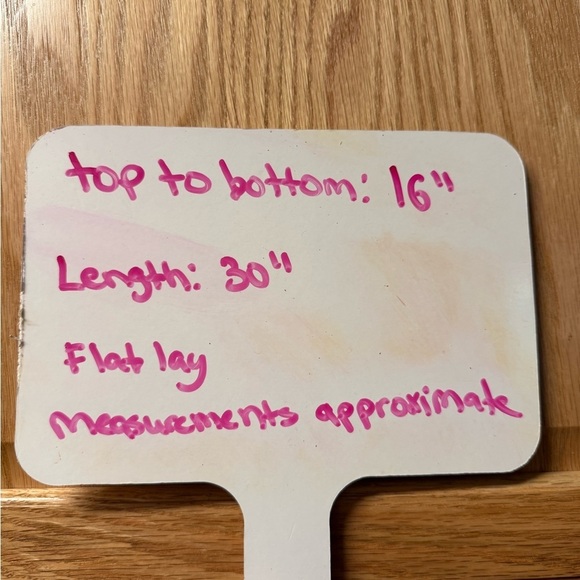 top to bottom: 16"
Length: 30"
Flat lay
measurements approximate